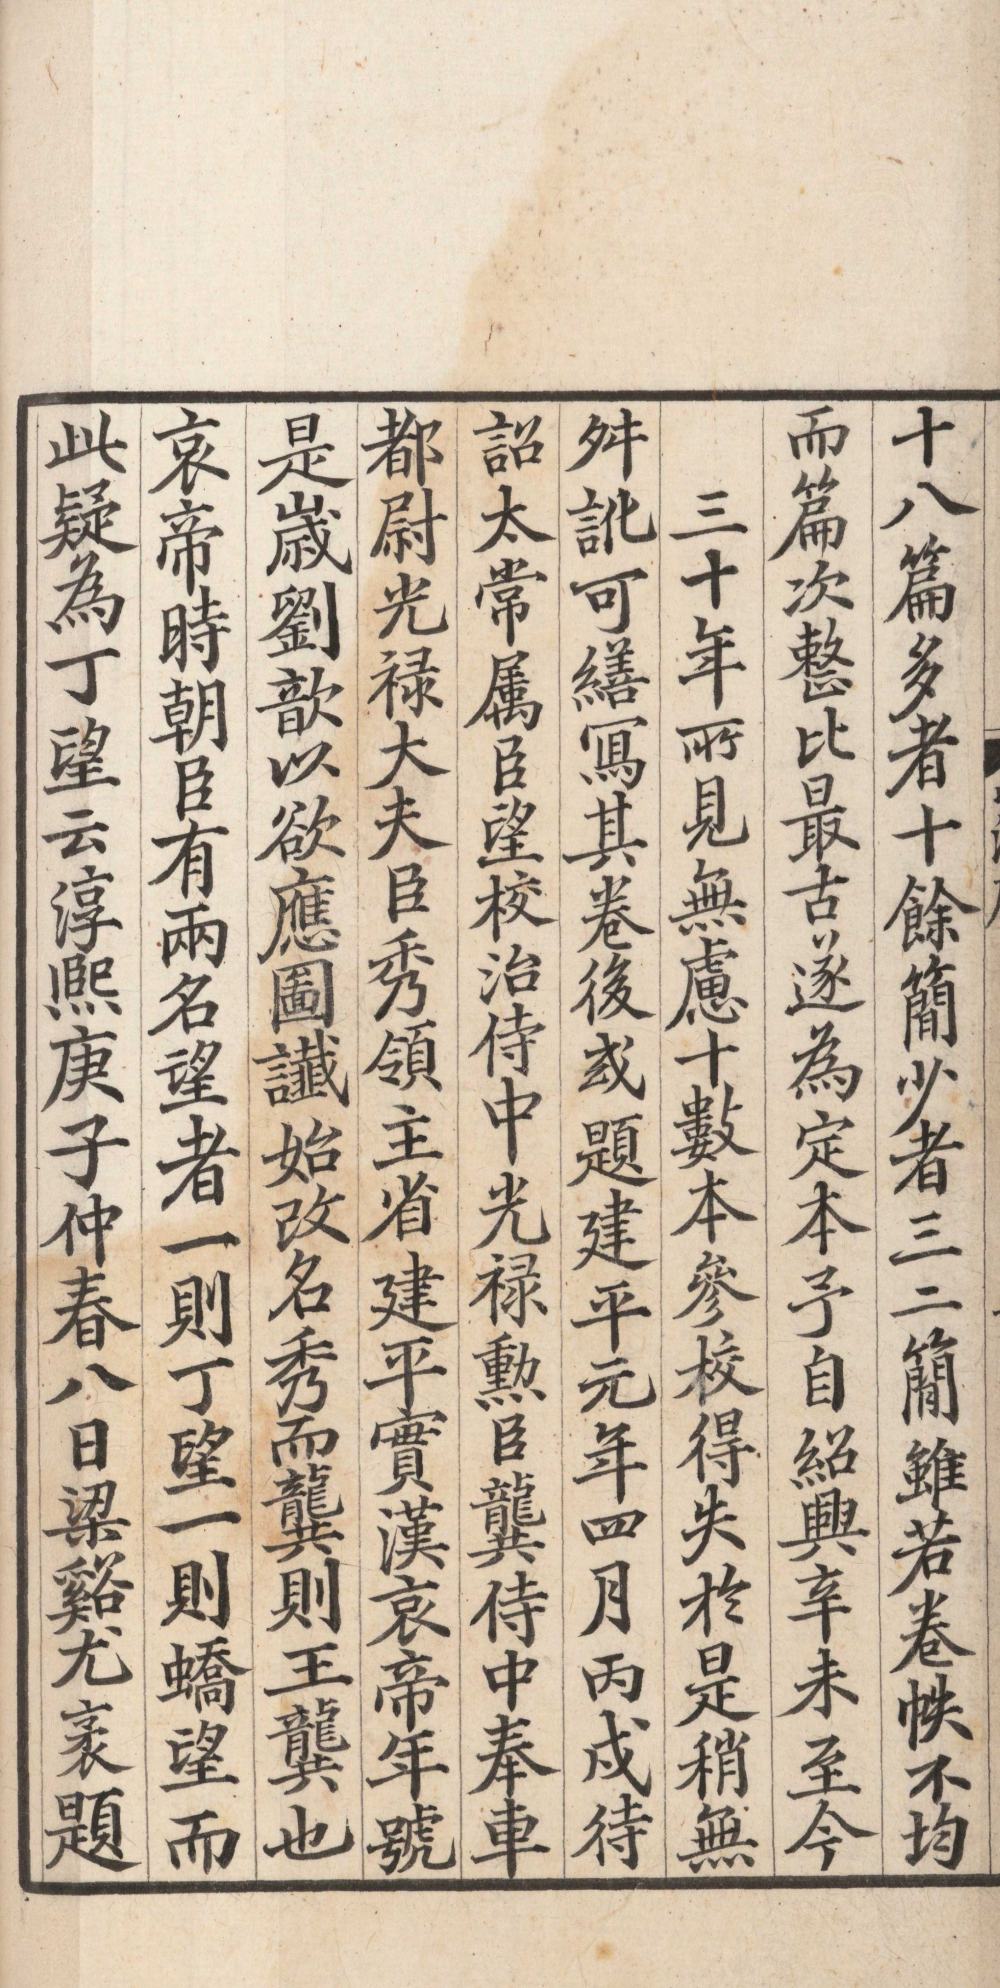 十八篇多者十餘簡少者三二簡雖若卷帙不均
而篇次整比最古遂為定本予自紹興辛未至今
三十年所見無慮十數本參校得失於是稍無
舛訛可繕寫其卷後或題建平元年四月丙戌待
詔太常属臣望校治侍中光禄勲臣龔侍中奉車
都尉光禄大夫臣秀領主省建平實漢哀帝年號
是歲劉歆以欲應圖讖始改名秀而龔則王龔也
哀帝時朝臣有兩名望者一則丁望一則蟜望而
此疑為丁望云淳熙庚子仲春八日梁谿尤袤題